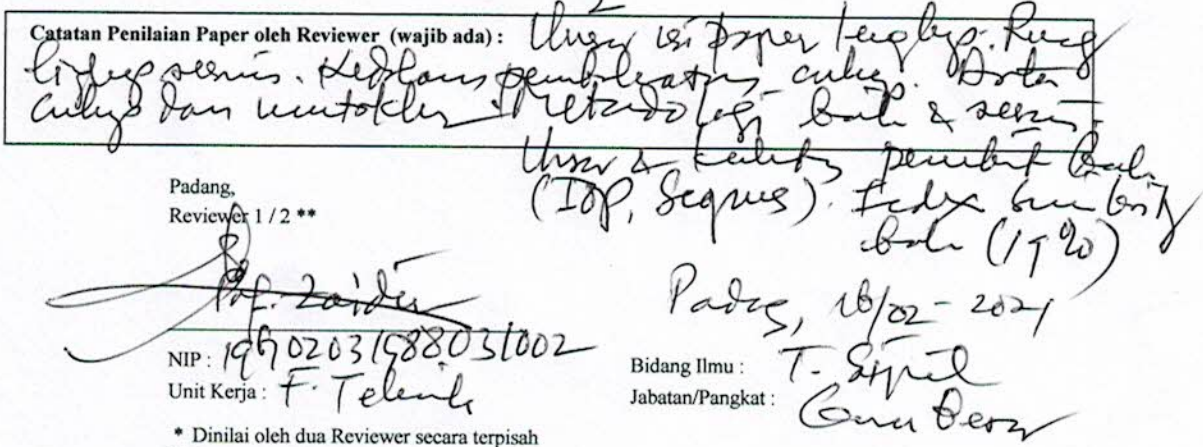 Catatan Penilaian Paper oleh Reviewer (wajib ada) : Unsur isi Paper lengkap. Ruang
lingkup sesuai. Kedalaman pembahasan cukup. Data
cukup dan mutakhir. Metodologi baik & sesuai.
Unsur & kualitas penerbit baik
(IOP, Scopus). Index similarity
baik (19%)
Padang,
Reviewer 1 / 2 **
Prof. Zaidir
Padang, 16/02-2021
NIP :
Unit Kerja : F. Teknik
Bidang Ilmu : T. Sipil
Jabatan/Pangkat : Guru Besar
* Dinilai oleh dua Reviewer secara terpisah